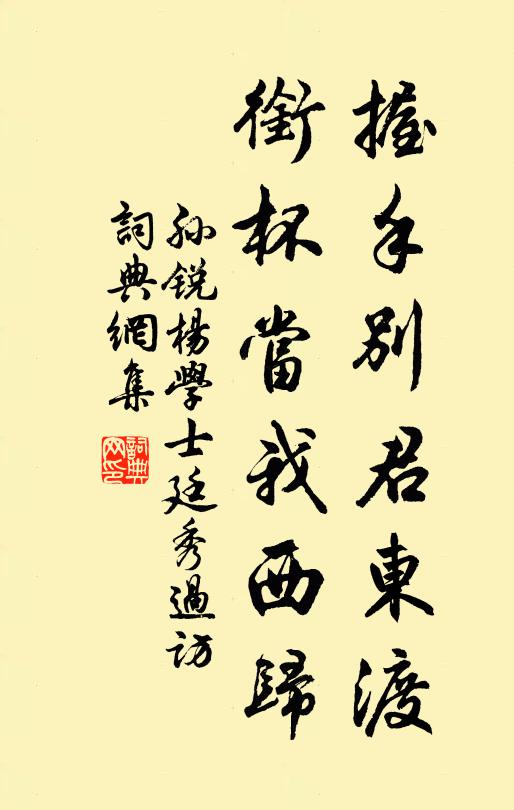 握手別君東渡
銜杯當我西歸
孙銳楊學士廷秀過訪
詞典網集
詞典網印